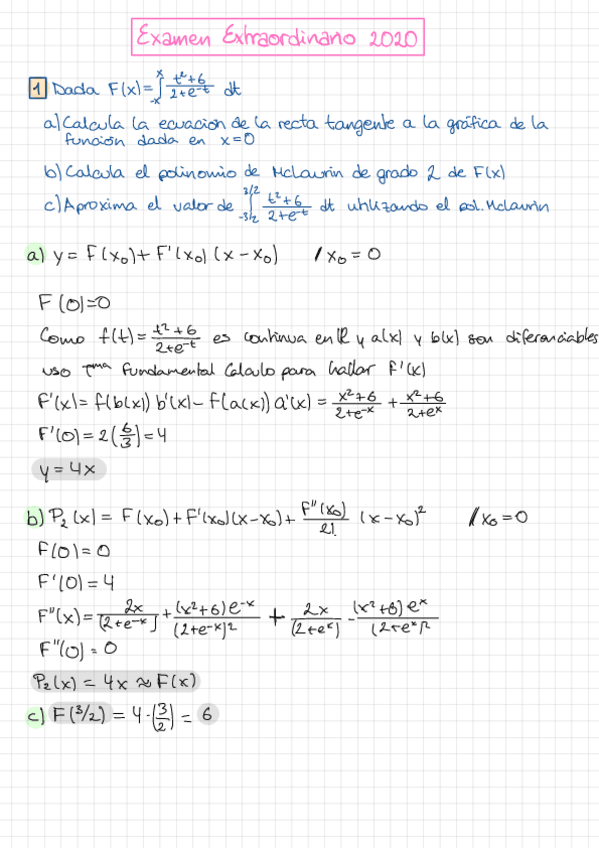 Examen Extraordinario 2020
1 Dada F(x)=∫_{-x}^{x} (t²+6)/(2+e^{-t}) dt
a) Calcula la ecuacion de la recta tangente a la gráfica de la
función dada en x=0
b) Calcula el polinomio de McLaurin de grado 2 de F(x)
c) Aproxima el valor de ∫_{-3/2}^{3/2} (t²+6)/(2+e^{-t}) dt utilizando el pol. Mclaurin
a) y = F(x₀)+F'(x₀)(x-x₀) / x₀=0
F(0)=0
Como f(t)=(t²+6)/(2+e^{-t}) es continua en ℝ y a(x) y b(x) son diferenciables
uso Tma Fundamental Calculo para hallar F'(x)
F'(x)=f(b(x)) b'(x)-f(a(x)) a'(x) = (x²+6)/(2+e^{-x}) + (x²+6)/(2+e^{x})
F'(0)=2(6/3)=4
y=4x
b) P₂(x)= F(x₀)+F'(x₀)(x-x₀)+ F''(x₀)/2! (x-x₀)² / x₀=0
F(0)=0
F'(0)=4
F''(x)= 2x/(2+e^{-x}) + (x²+6)e^{-x}/(2+e^{-x})² + 2x/(2+e^{x}) - (x²+6)e^{x}/(2+e^{x})²
F''(0)=0
P₂(x) = 4x ≈ F(x)
c) F(3/2) = 4·(3/2) = 6